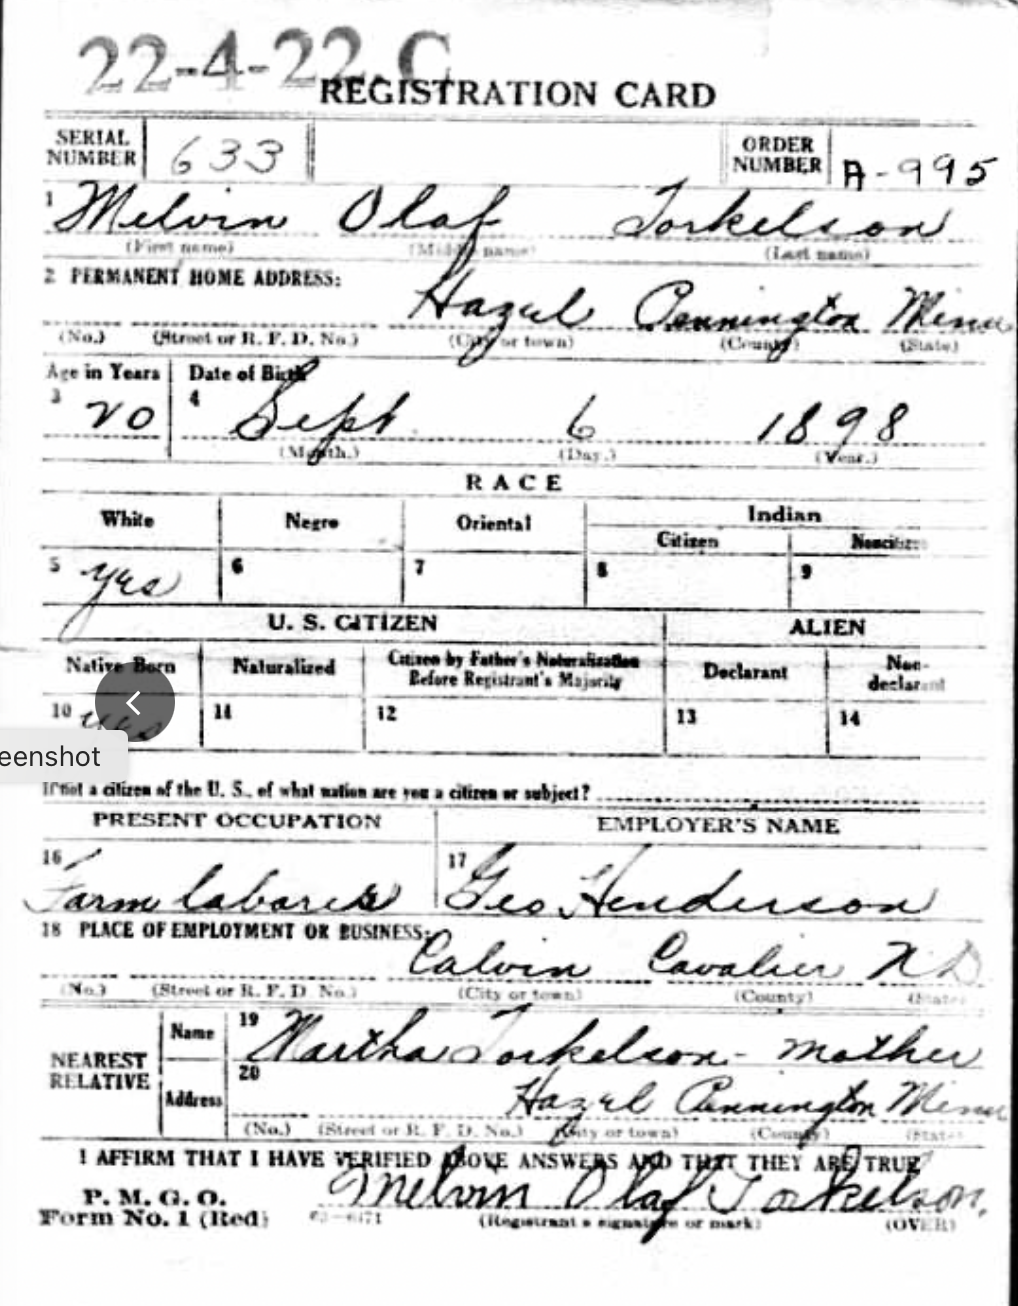 22-4-22.C
REGISTRATION CARD
SERIAL NUMBER 633 ORDER NUMBER A-995
1 Melvin Olaf Torkelson
(First name) (Middle name) (Last name)
2 PERMANENT HOME ADDRESS: Hazel Pennington Minn
(No.) (Street or R. F. D. No.) (City or town) (County) (State)
Age in Years Date of Birth
3 20 4 Sept 6 1898
(Month.) (Day.) (Year.)
RACE
White Negro Oriental Indian
Citizen Noncitizen
5 yes 6 7 8 9
U. S. CITIZEN ALIEN
Native Born Naturalized Citizen by Father's Naturalization Before Registrant's Majority Declarant Non-declarant
10 yes 11 12 13 14
eenshot
If not a citizen of the U. S., of what nation are you a citizen or subject?
PRESENT OCCUPATION EMPLOYER'S NAME
16 Farm laborer 17 Geo. Henderson
18 PLACE OF EMPLOYMENT OR BUSINESS: Calvin Cavalier N D
(No.) (Street or R. F. D. No.) (City or town) (County) (State)
NEAREST RELATIVE Name 19 Martha Torkelson - mother
Address 20 Hazel Pennington Minn
(No.) (Street or R. F. D. No.) (City or town) (County) (State)
I AFFIRM THAT I HAVE VERIFIED ABOVE ANSWERS AND THAT THEY ARE TRUE
P. M. G. O. Melvin Olaf Torkelson.
Form No. 1 (Red) (Registrant's signature or mark) (OVER)